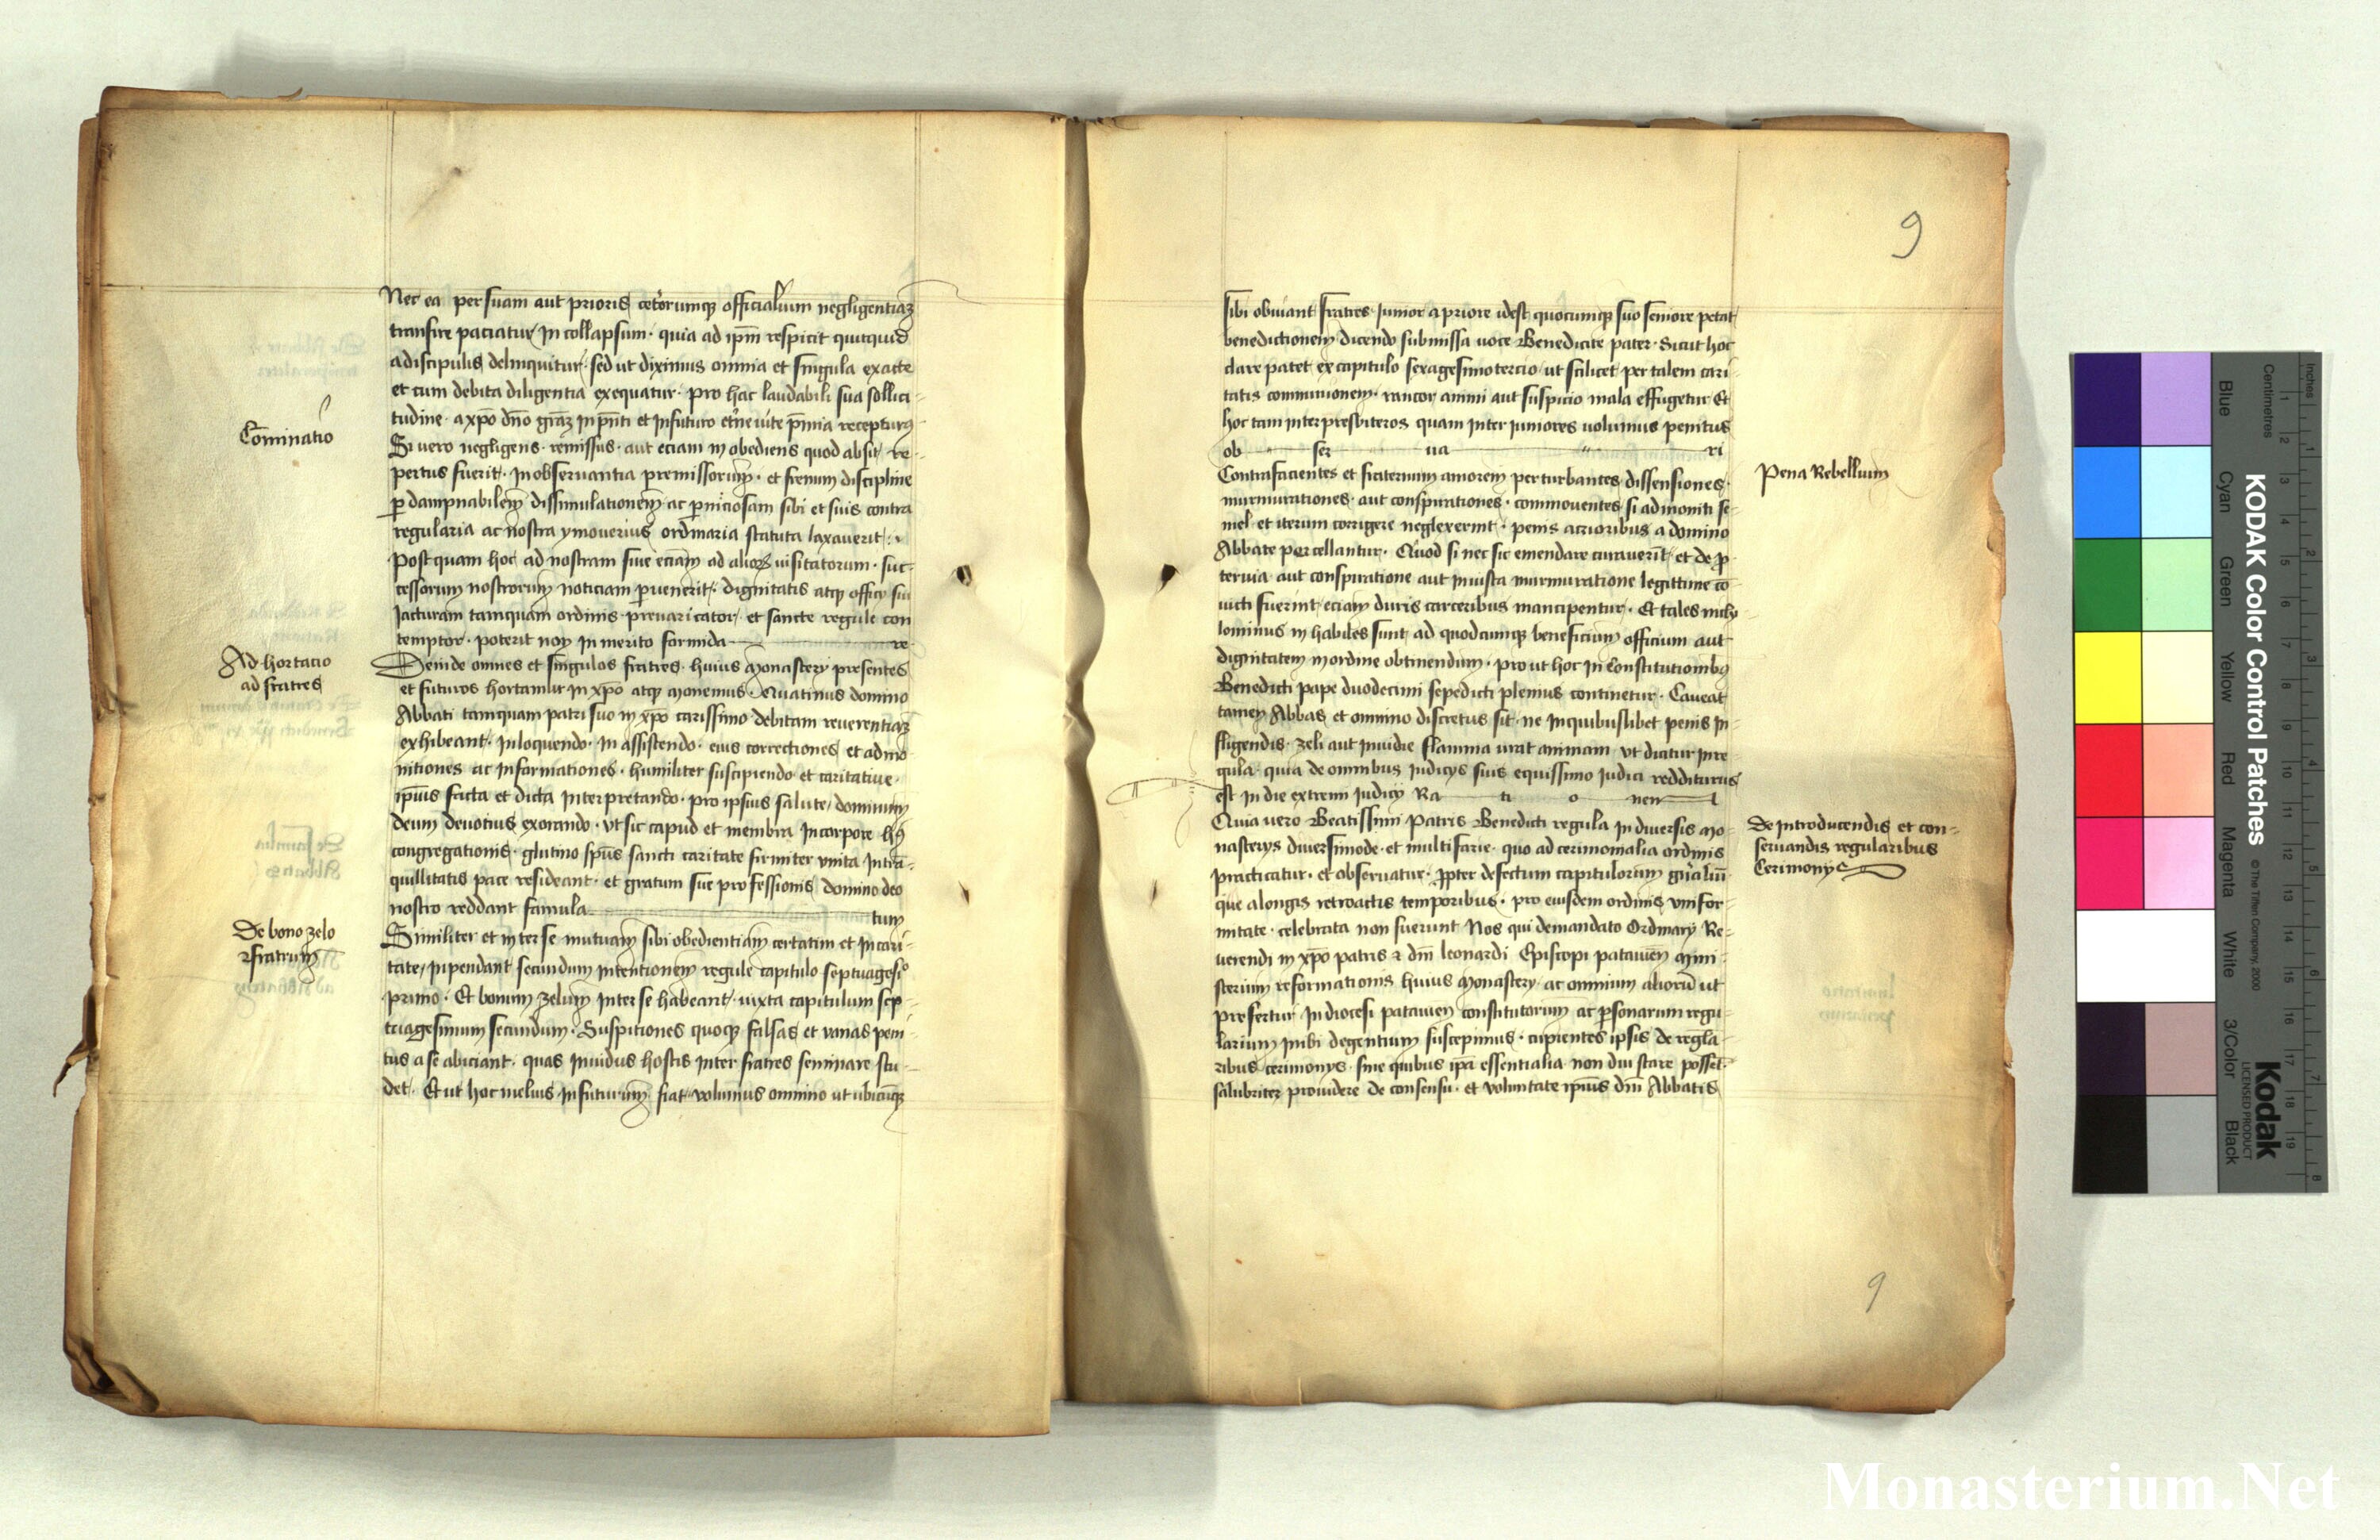 Nec ea per suam aut prioris ceterorumque officialium negligentiaz
transire paciatur in collapsum · quia ad ipm̄ respicit quitquid
a discipulis delinquitur · sed ut diximus omnia et singula exacte
et cum debita diligentia exequatur · pro hac laudabili sua sollici-
tudine · a xpō dnō graz in pn̄ti et in futuro etn̄e uite pmia recepturus
Cōminatio
Si vero negligens · remissus · aut eciam inobediens quod absit re-
pertus fuerit · in observantia premissorum · et frenum discipline
p dampnabilem dissimulationem ac pniciosam sibi et suis contra
regularia ac nostra ymoverius ordinaria statuta laxaverit ·
Postquam hoc ad nostram siue eciam ad alior visitatorum · suc-
cessorum nostrorum noticiam pvenerit · dignitatis atq officy sui
Jacturam tamquam ordinis · prevaricator · et sancte regule con
temptor · poterit non Inmerito formida re
Ad hortacio
ad fratres
Deinde omnes et singulos fratres · huius Monastery presentes
et futuros hortamur in xpō atq monemus · Quatinus domino
Abbati tamquam patri suo in xpō carissimo debitam reverentiaz
exhibeant · In loquendo · In assistendo · eius correctiones et admo-
nitiones ac Informationes · humiliter suscipiendo et caritative ·
ipius facta et dicta Interpretando · pro ipsius salute dominum
deum devotius exorando · vt sic capud et membra In corpore hꝰ
congregationis · glutino spūs sancti caritate firmiter vnita In tra-
quillitatis pace resideant · et gratum sue professionis domino deo
nostro reddant famula tum
De bono zelo
fratrum
Similiter et inter se mutuam sibi obedientiam certatim et In cari-
tate inpendant secundum intentionem regule capitulo septuagesio
primo · Et bonum zelum Inter se habeant · iuxta capitulum sep-
tuagesimum secundum · Suspitiones quoq falsas et vanas peni-
tus a se abiciant · quas Invidus hostis Inter fratres seminare stu-
det · Et ut hoc melius In futurum fiat volumus omnino ut ubicūq
9
sibi obviant fratres · Junior a priore idest quocumq suo seniore petat
benedictionem dicendo submissa uoce Benedicite pater · Sicut hoc
clare patet ex capitulo sexagesimotercio ut scilicet per talem cari-
tatis communionem · rancor animi aut suspicio mala effugetur Et
hoc tam inter presbiteros quam inter Juniores uolumus penitus
ob ser ua ri
Pena Rebellium
Contrafacientes et fraternum amorem perturbantes dissensiones ·
murmurationes · aut conspirationes · commouentes si admoniti se-
mel · et iterum corrigere neglexerint · penis acrioribus a domino
Abbate percellantur · Quod si nec sic emendare curaverīt et de p-
tervia aut conspiratione aut iniusta murmuratione legittime cō-
uicti fuerint eciam duris carceribus mancipentur · Et tales nichi-
lominus inhabiles sunt ad quodcumq beneficium officium aut
dignitatem in ordine obtinendum · prout hoc In Constitutionibꝰ
Benedicti pape duodecimi sepedicti plenius continetur · Caveat
tamen Abbas et omnino discretus sit · ne In quibuslibet penis In-
fligendis · zeli aut Invidie flamma urat animam · vt dicatur In re-
gula · quia de omnibus Judicys suis equissimo Judici redditurus
est In die extremi Judicy Ra ti o nem
De Introducendis et con-
seruandis regularibus
Cerimonys
Quia uero Beatissimi Patris Benedicti regula In diversis Mo-
nasterys diversimode · et multifarie · quo ad cerimonialia ordinis
practicatur · et observatur · ppter defectum capitulorum gn̄aliū
que a longis retroactis temporibus · pro eiusdem ordinis vnifor-
mitate · celebrata non fuerunt Nos qui de mandato Ordinary Re-
uerendi in xpō patris et dnī leonardi Episcopi patavien mini-
sterium reformationis huius Monastery · ac omnium aliorū ut
prefertur In diocesi patavien constitutorum ac psonarum regu-
larium Inibi degentium suscepimus · cupientes ipsis de regla-
ribus cerimonys · sine quibus ipa essentialia non diu stare possēt ·
salubriter providere de consensu · et voluntate ipius dnī Abbatis
9
Inches
Centimetres
KODAK Color Control Patches
© The Tiffen Company, 2000
Kodak
LICENSED PRODUCT
Blue
Cyan
Green
Yellow
Red
Magenta
White
3/Color
Black
Monasterium.Net